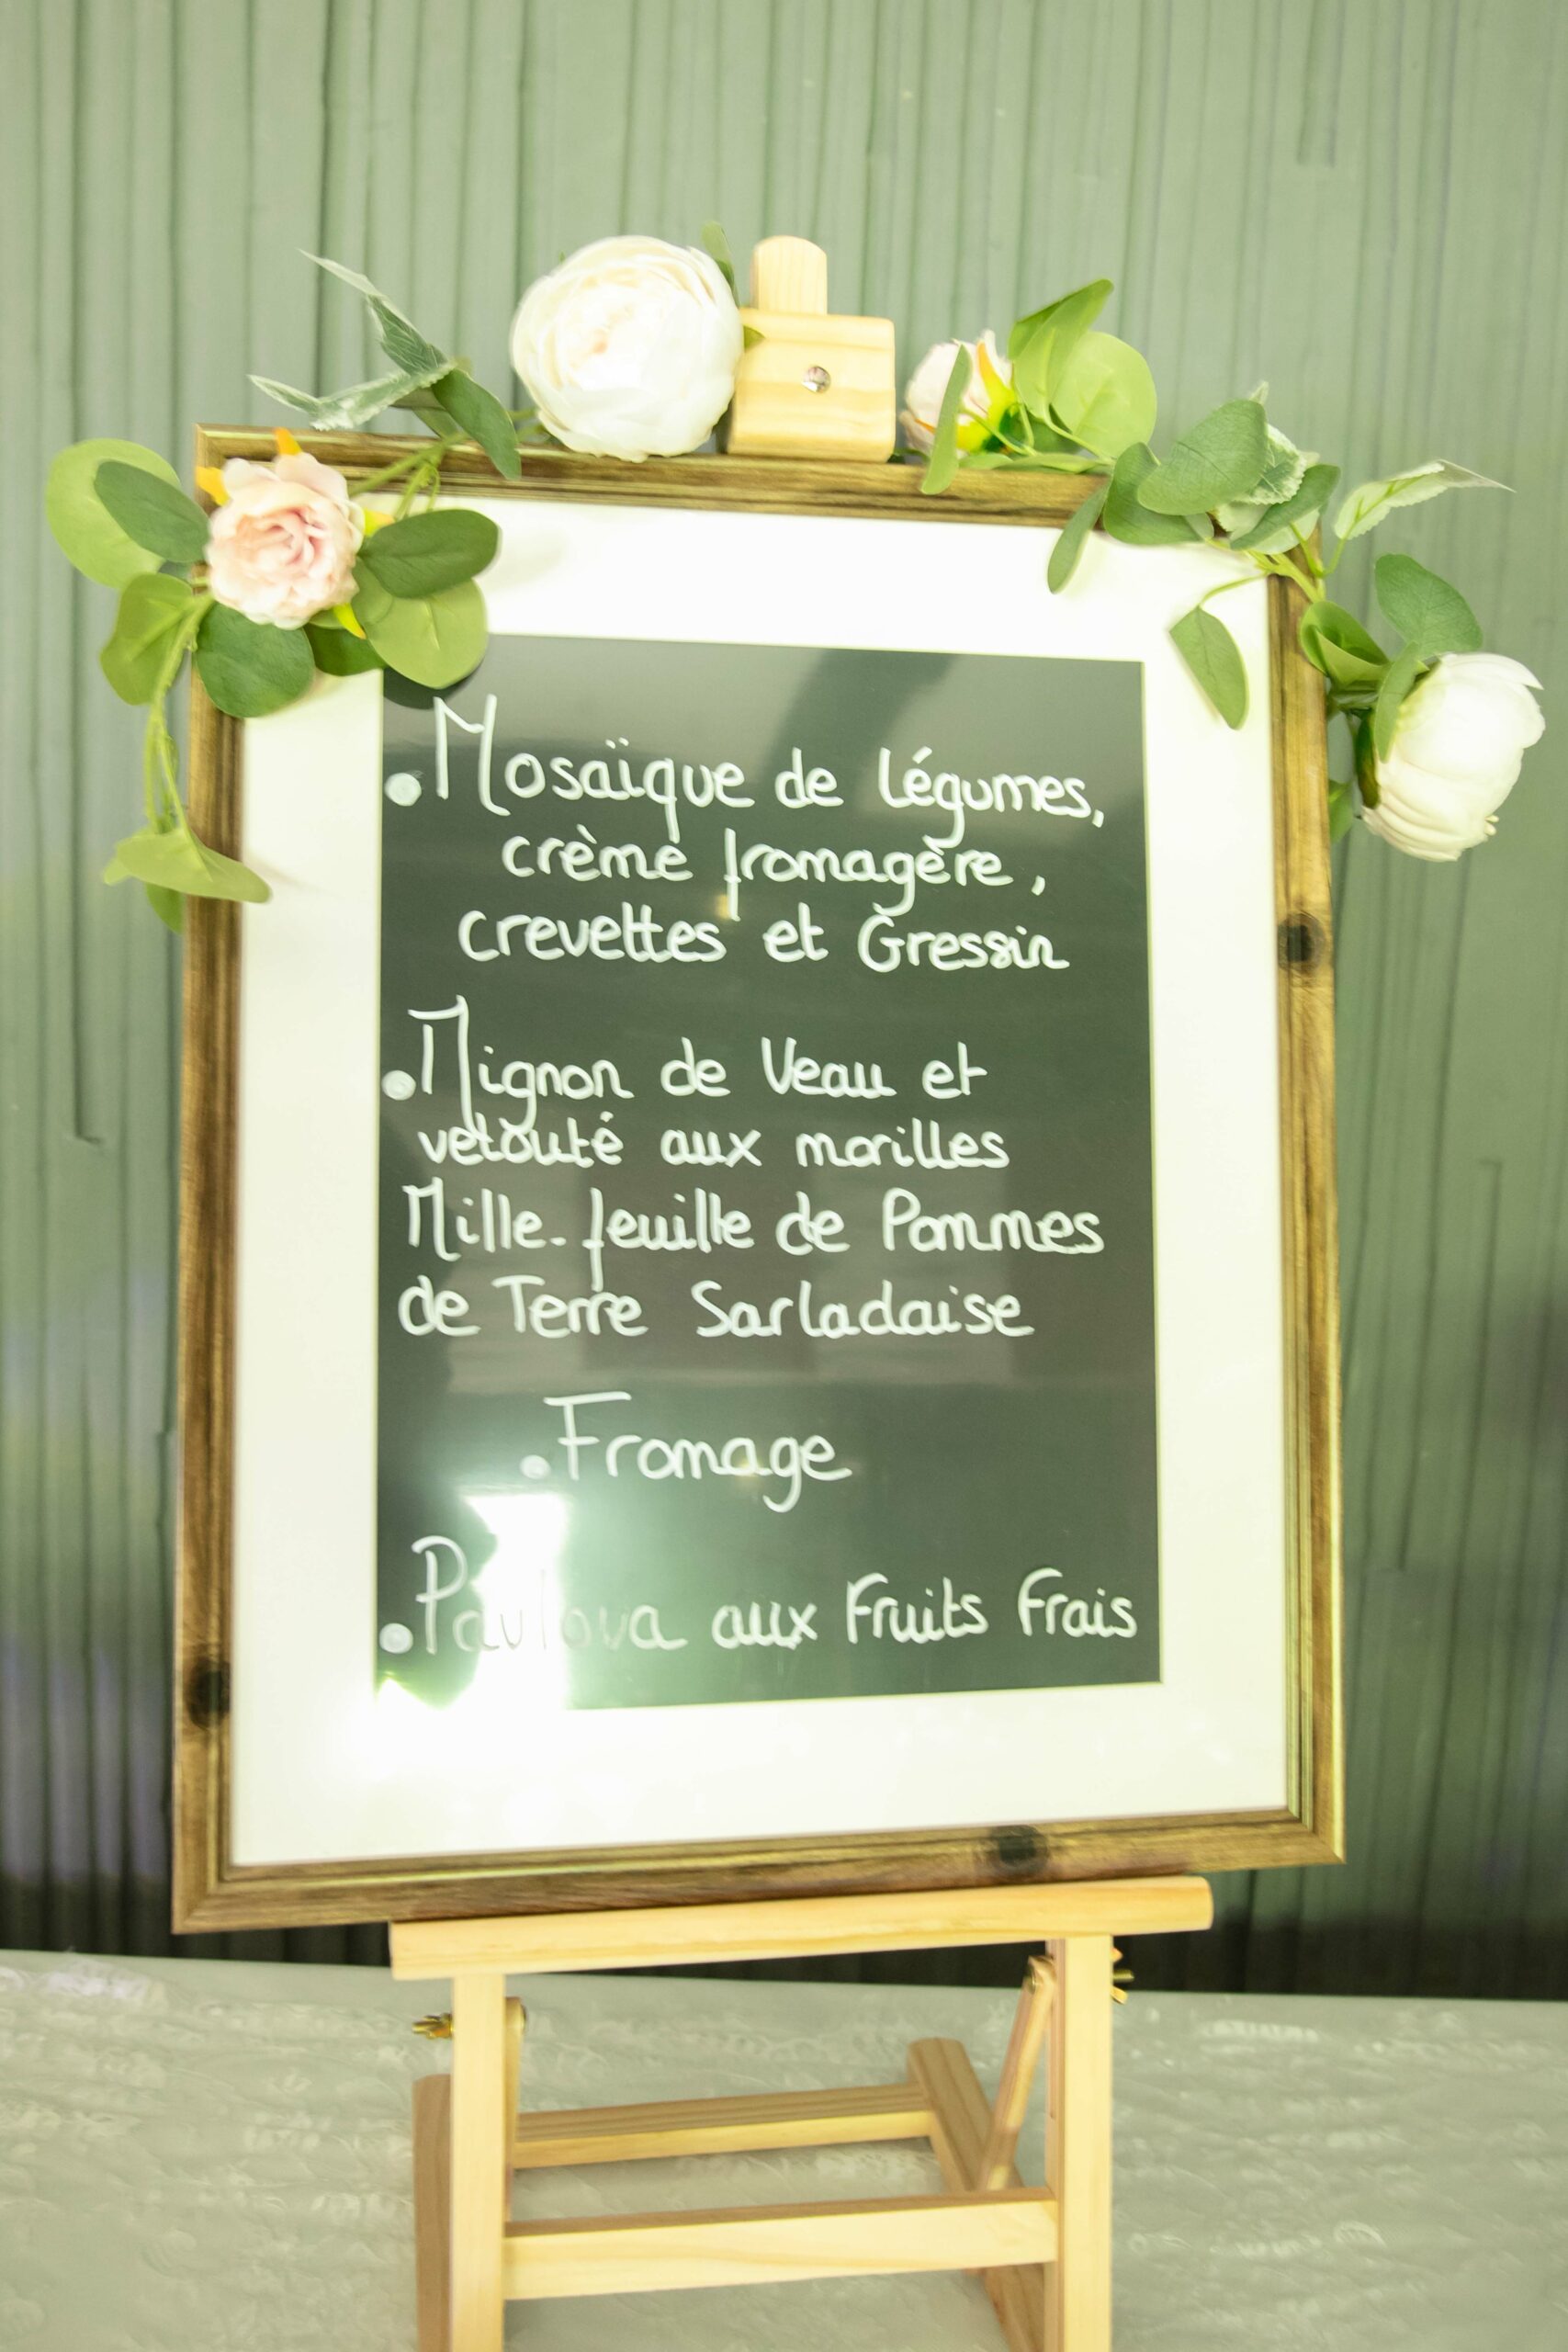 • Mosaïque de légumes,
crème fromagère,
crevettes et Gressin
• Mignon de Veau et
velouté aux morilles
Mille-feuille de Pommes
de Terre Sarladaise
• Fromage
• Pavlova aux Fruits Frais